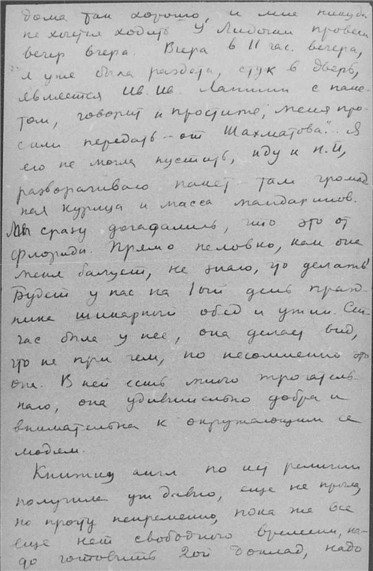 дома так хорошо, и мне никуда
не хочется ходить. У Лидочки провела
вечер вчера. Вчера в 11 час. вечера,
я уже была раздета, стук в дверь,
является Ив. Ив. Лапшин с паке-
том, говорит „простите, меня про-
сили передать — от Шахматова". Я
его не могла пустить, иду к Н.И,
разворачиваю пакет там громад
ная курица и масса мандаринов.
Мы сразу догадались, что это от
Флориды. Прямо неловко, как она
меня балует, не знаю, что делать!
Будет у нас на 1ый день празд-
ника шикарный обед и ужин. Сей
час была у нее, она делает вид,
что не при чем, но несомненно это
она. В ней есть много трогатель-
ного, она удивительно добра и
внимательна к окружающим ее
людям.
Книжку англ. по ист религии
получила уж давно, еще не прочла,
но прочту непременно, пока же все
еще нет свободного времени, на-
до готовить 2ой доклад, надо